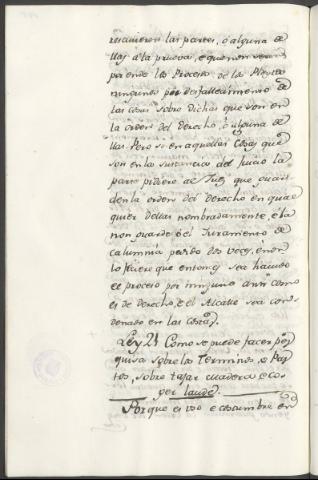 rescivieren las partes, ó alguna de
llas á la prueva, e que non
por ende los Procesos de los Pleytos
ningunos por desfallecimiento de
las cosas sobre dichas que son en
la orden del Derecho, ó alguna de
llas. Pero si en aquellas cosas que
son en la sustancia del Juicio la
parte pidiere al Juez que guar
den la orden del derecho en qual
quier dellas nombradamente, é la
non guarde ó el Juramento de
calumnia pedido dos veces, e non
lo ficiere que entonces sea havido
el proceso por ninguno así como
es de derecho, é el Alcalde sea con
denado en las costas.
Ley 21 Como se puede facer pes
quisa sobre los Terminos, e Pas
tos, sobre tajar e cos
ger lande.
Porque es uso e costumbre en